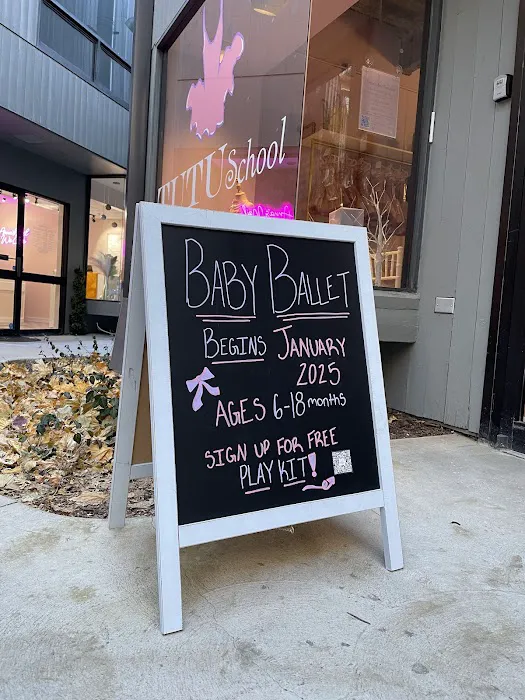 TUTU School
BABY BALLET
BEGINS JANUARY
2025
AGES 6-18 months
SIGN UP FOR FREE
PLAY KIT!